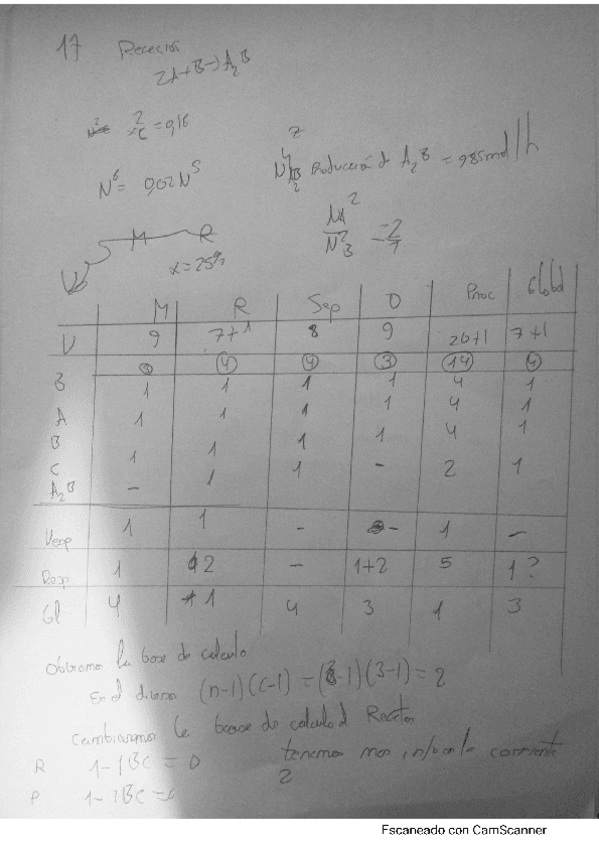 17 Reacción
2A+B→A₂B
x²c = 0,16
N⁶ = 0,02 N⁵
Producción de A₂B = 985 mol/h
NA² / N²B = 2/1
M R
x = 25%
M R Sep D Proc Global
V 9 7+1 8 9 26+1 7+1
4 4 3 14 4
B 1 1 1 1 4 1
A 1 1 1 1 4 1
B 1 1 1 1 4 1
C 1 1 1 - 2 1
A₂B -
Vesp 1 1 - - 1 -
Resp 1 2 - 1+2 5 1?
Gl 4 1 4 3 1 3
Obviamos la base de calculo
En el divisor (n-1)(c-1) = (3-1)(3-1) = 2
Cambiaremos la base de calculo al Reactor
R 1-1BC = 0 tenemos mas info en la corriente
P 1-1BC = 0 2
Escaneado con CamScanner